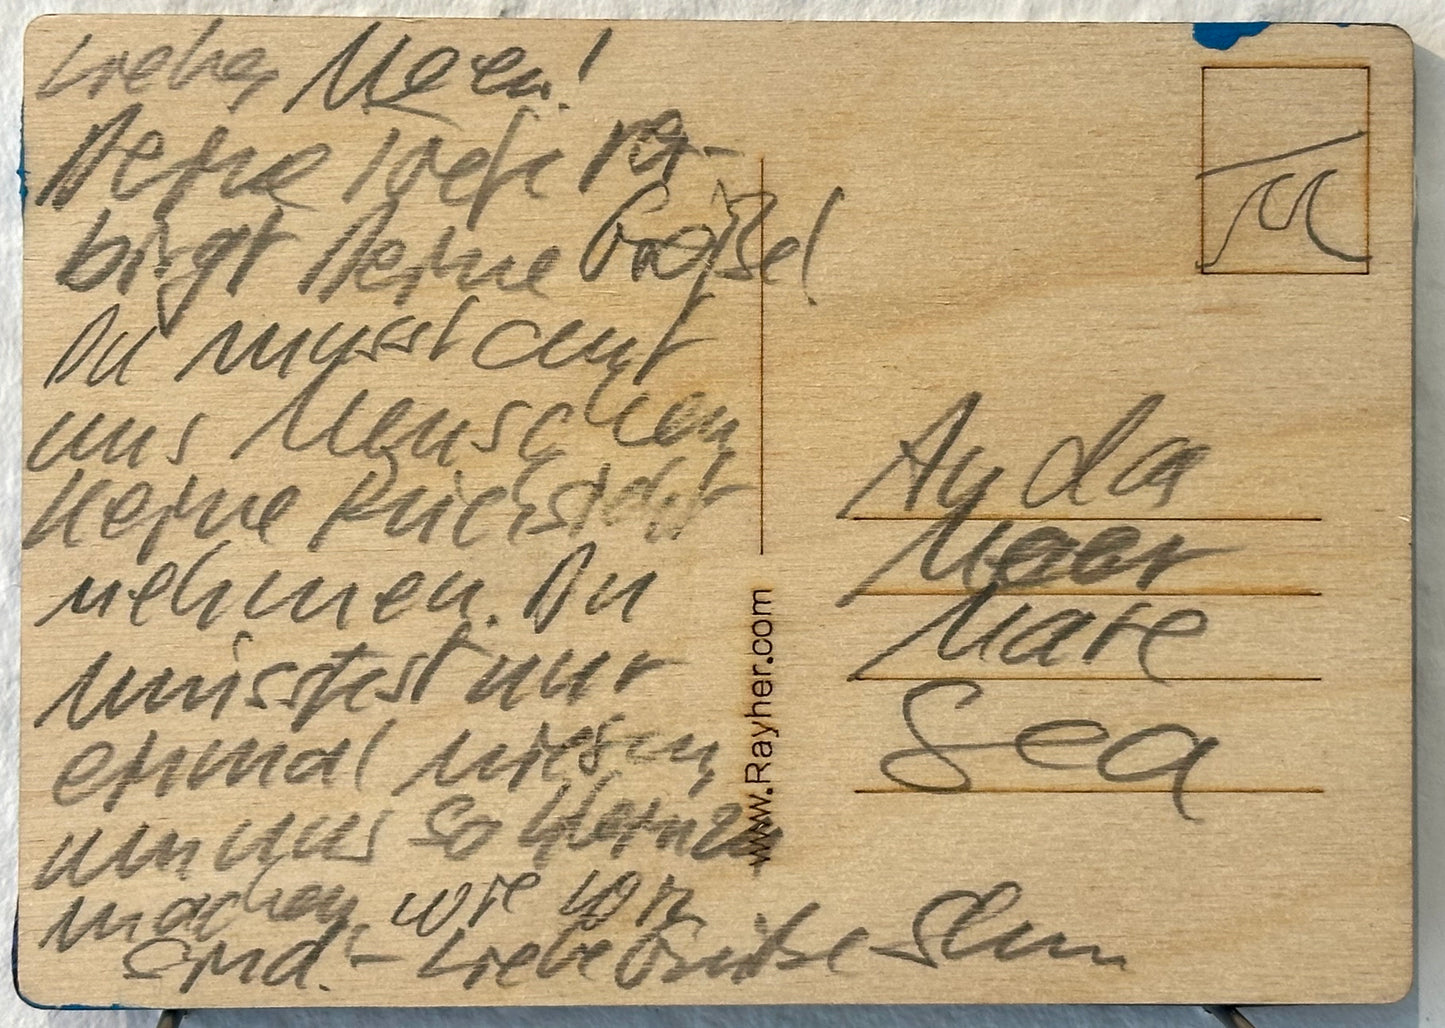 Liebes Meer!
Deine Tiefe ver-
birgt Deine Größe!
Du musst auf
uns Menschen
keine Rücksicht
nehmen. Du
müsstest nur
einmal niesen,
um uns so klein zu
machen, wie wir
sind. - Liebe Grüße
An das
Meer
Mare
Sea
www.Rayher.com